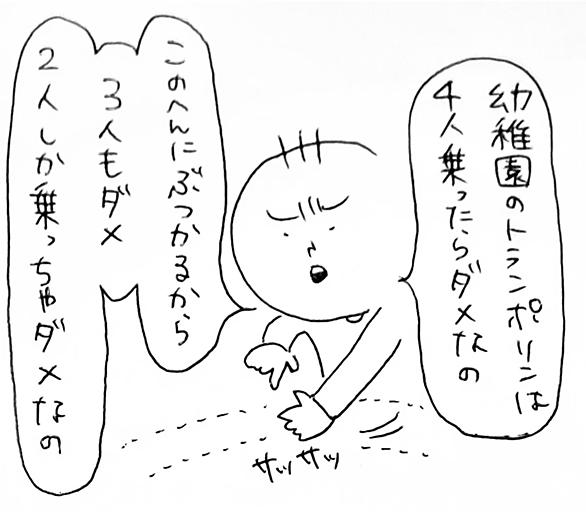 幼稚園のトランポリンは
4人乗ったらダメなの
このへんにぶつかるから
3人もダメ
2人しか乗っちゃダメなの
サッサッ